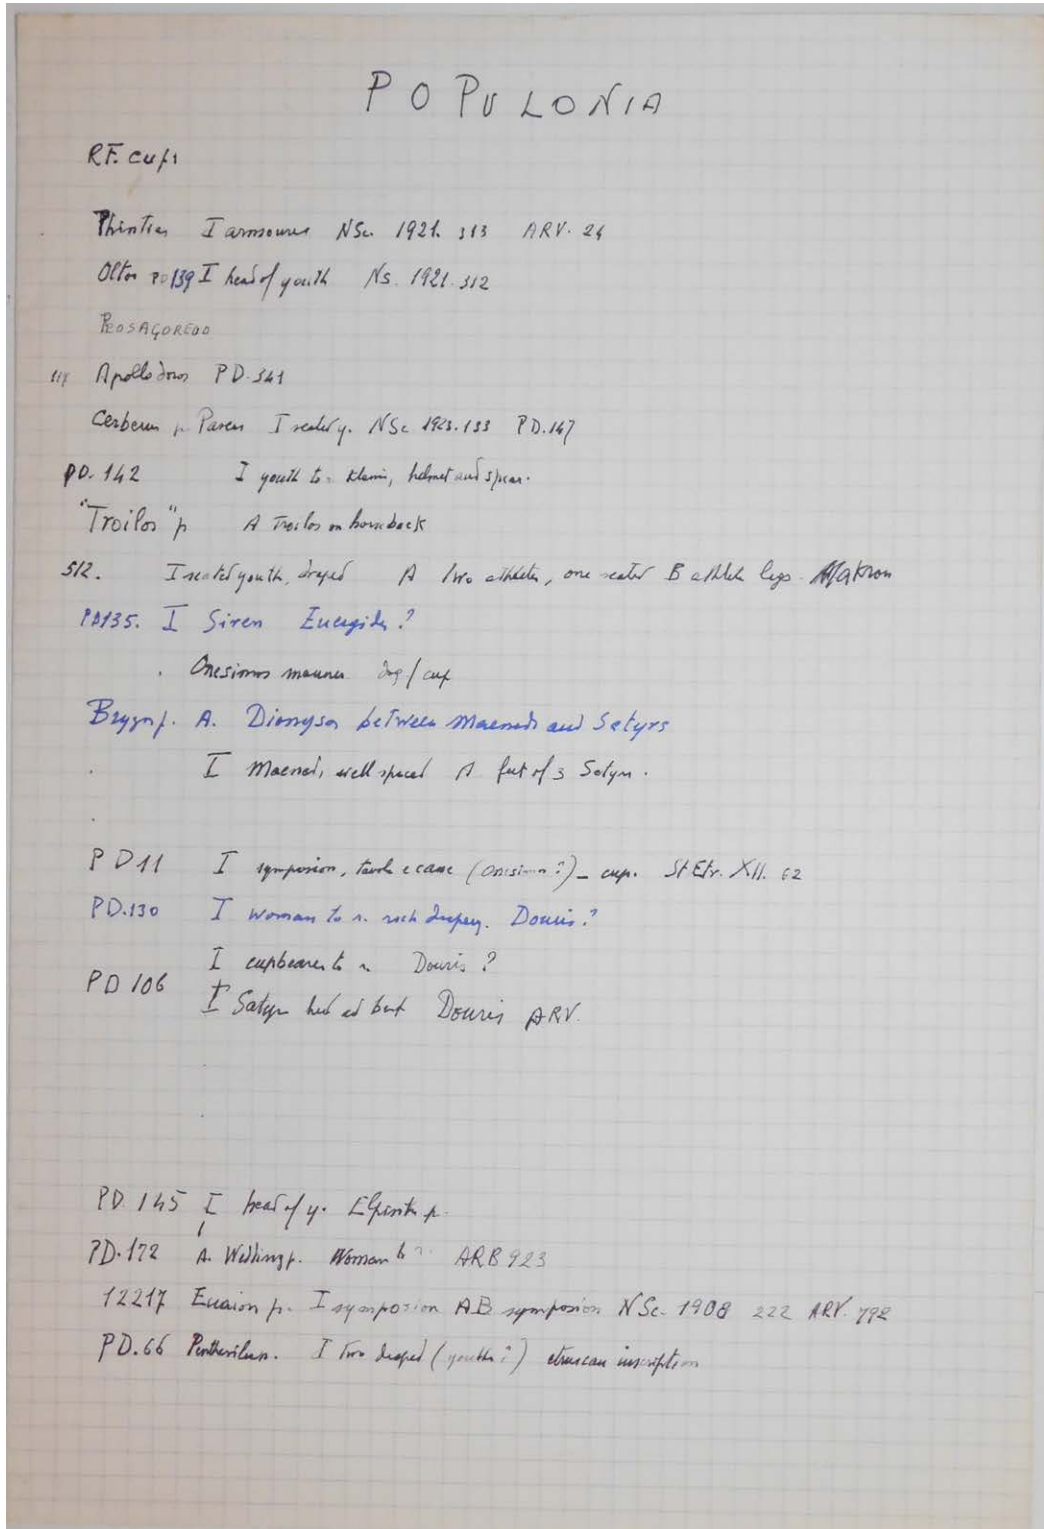 POPULONIA
RF. cups
Phintias I armourer NSc. 1921. 313 ARV. 24
Oltos PD139 I head of youth NS. 1921. 312
PROSAGOREUO
Apollodoros PD.341
Cerberus p. Paren I seated y. NSc 1923.133 PD.147
PD.142 I youth to r. klamis, helmet and spear.
"Troilos" p A Troilos on horseback
512. I seated youth, draped A two athletes, one seated B athlete legs. Makron
PD135. I Siren Euergides?
Onesimos manner dog/cup
Brygos p. A. Dionysos between Maenads and Satyrs
I Maenad, well spaced A feet of 3 Satyrs.
PD11 I symposion, (Onesimos?) – cup. St Etr. XII. 62
PD.130 I Woman to r. rich drapery. Douris?
I cupbearer to r. Douris?
PD 106 I Satyr Douris ARV.
PD.145 I head of y. Elpinikos p.
PD.172 A. Wedding p. Woman to r. ARB 923
12217 Euaion p. I symposion AB symposion NSc. 1908 222 ARV. 792
PD.66 Penthesilea p. I Two draped (youths?) etruscan inscription